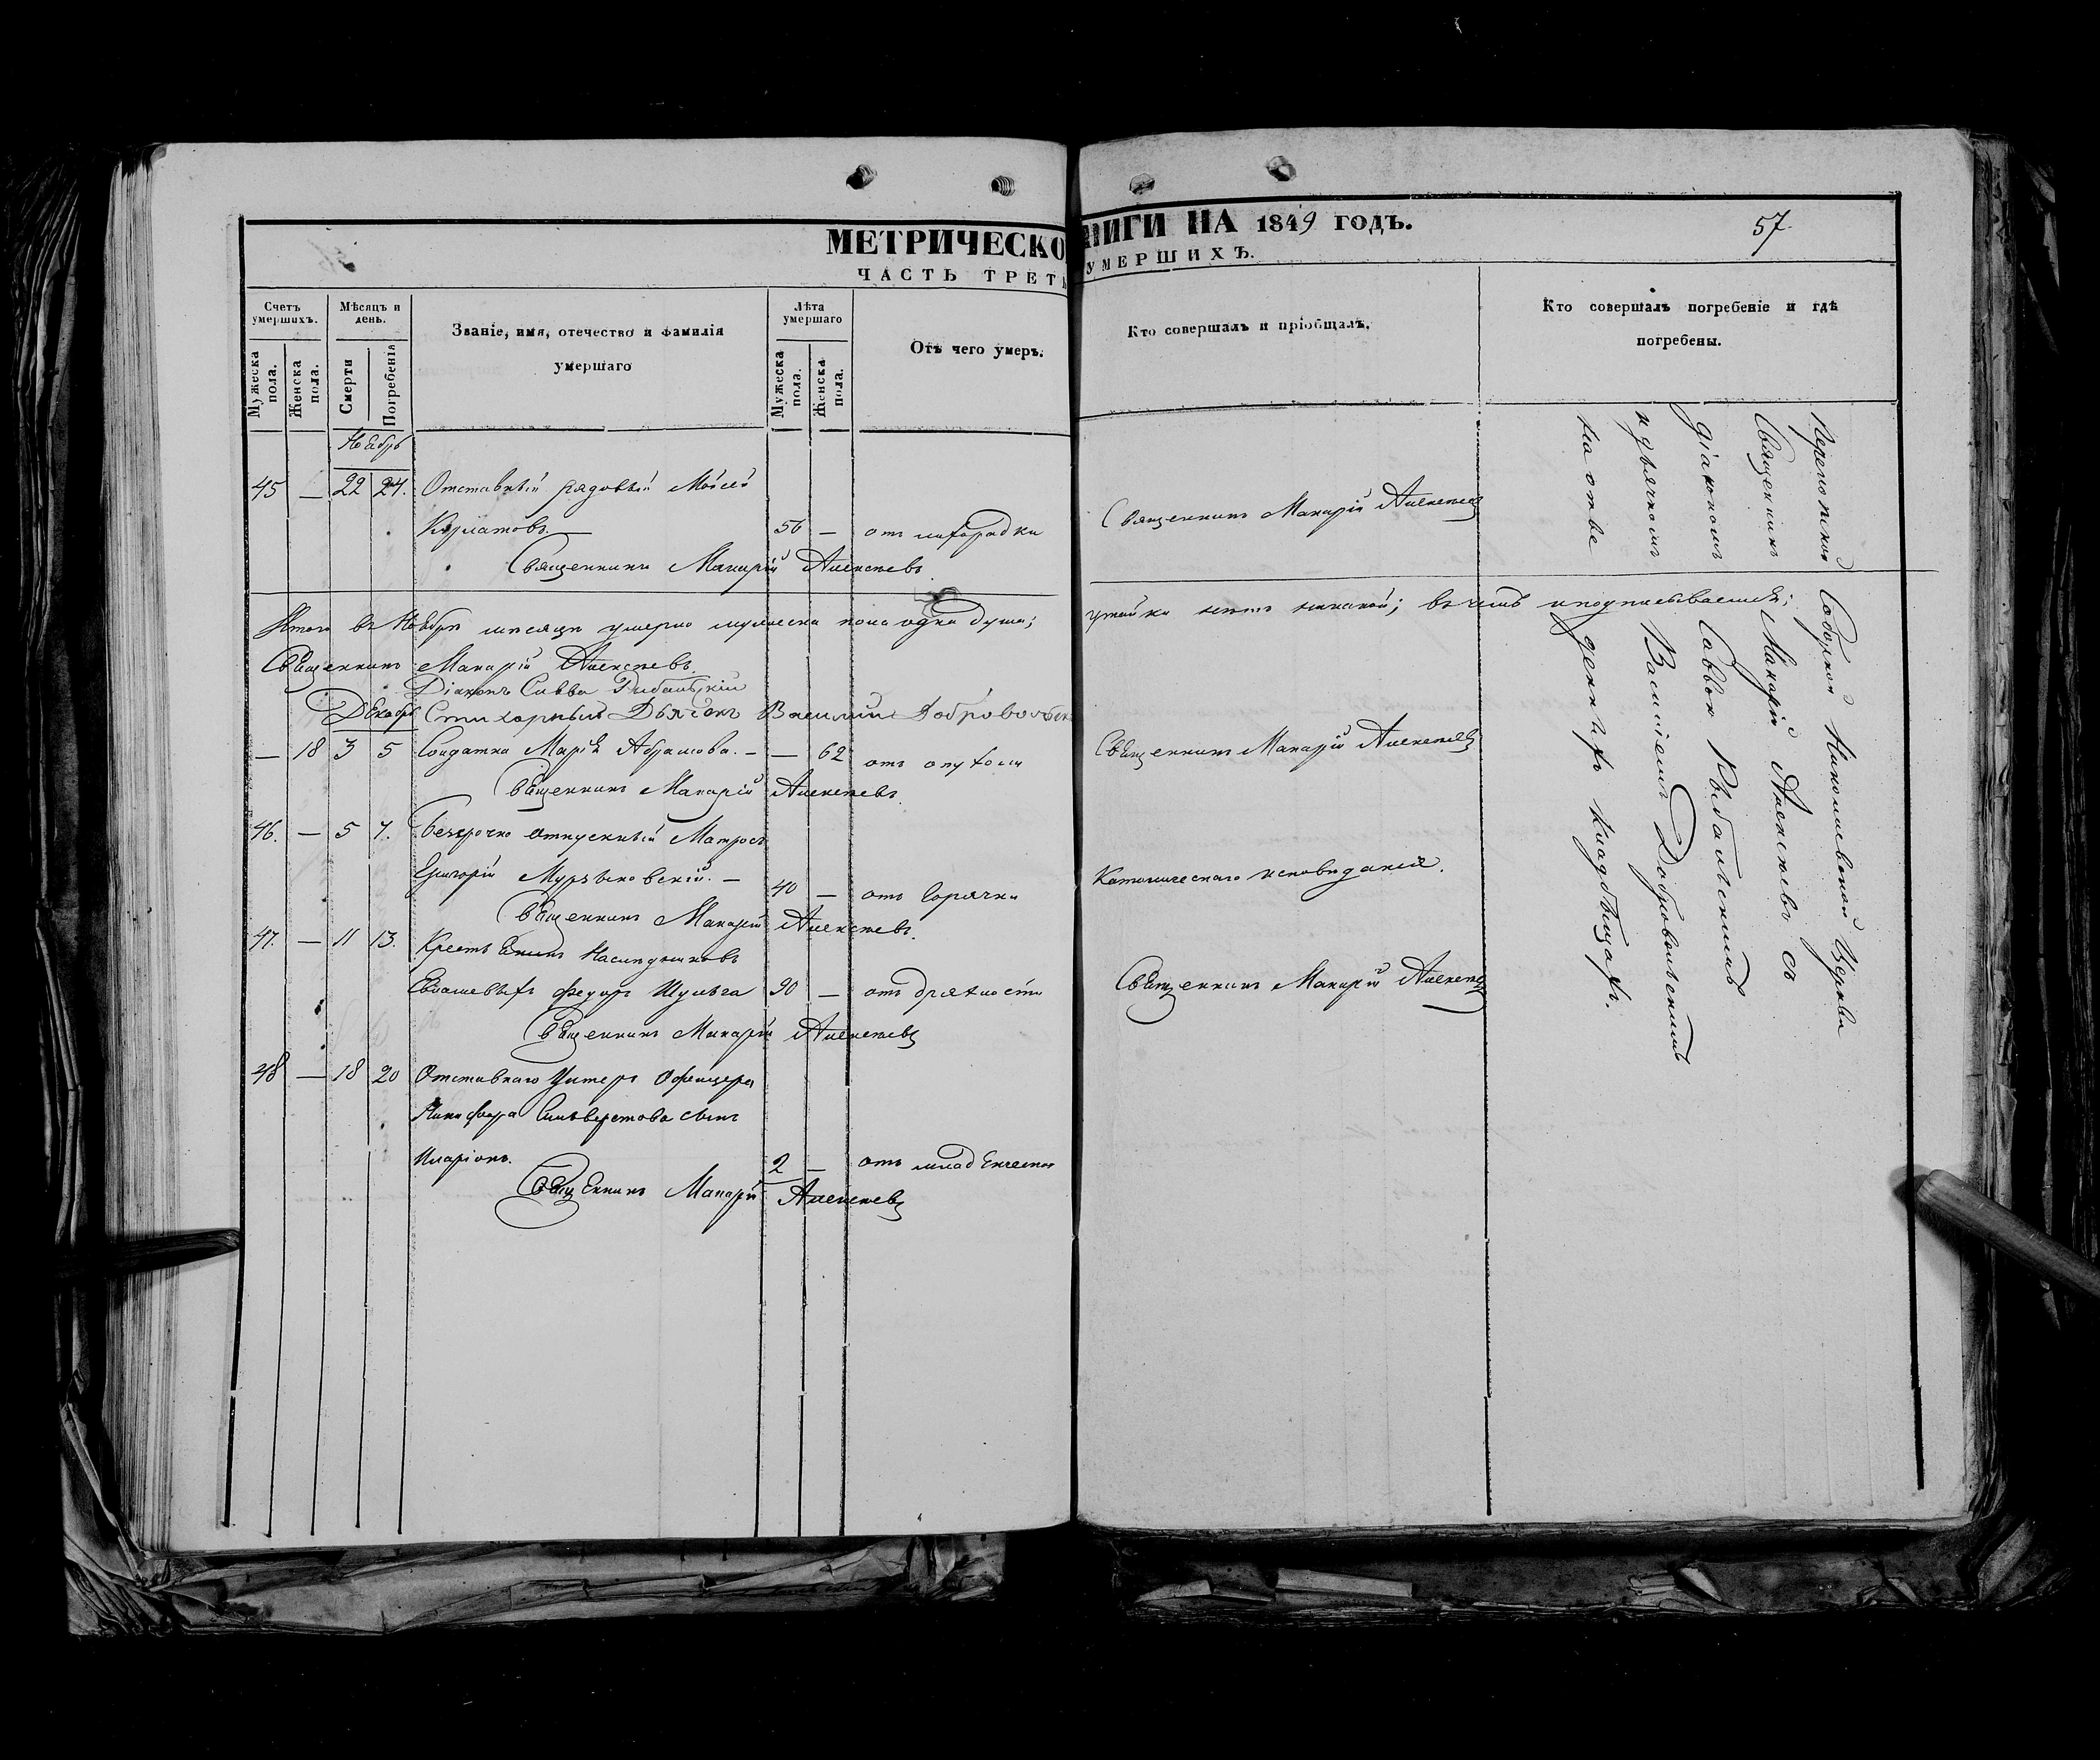 МЕТРИЧЕСКО
ЧАСТЬ ТРЕТ
Счетъ умершихъ.
Мѣсяцъ и день.
Званіе, имя, отечество и фамилія
умершаго
Лѣта умершаго
Отъ чего умеръ.
Мужеска пола.
Женска пола.
Смерти
Погребенія
Мужеска пола.
Женска пола.
Ноябрь
45 — 22 24. Отставный рядовый Мойсей
56 — отъ лихорадки
Священникъ Макарій Алексѣевъ
Итого въ Ноябрѣ мѣсяцѣ умерло мужеска пола одна душа;
Священникъ Макарій Алексѣевъ
Діаконъ Савва Рибальскій
Декабрь Стихарный Дьячокъ Василий Добровольск
— 18 3 5 Солдатка Марія Абрамова. — — 62 отъ опухоли
Священникъ Макарій Алексѣевъ.
46. — 5 7. Безсрочно отпускный Матросъ
Григорій — 40 — отъ горячки
Священникъ Макарій Алексѣевъ.
47. — 11 13. Крестьянинъ Наслѣдниковъ
Федоръ Шульга 90 — отъ дряхлости
Священникъ Макарій Алексѣевъ
48 — 18 20 Отставнаго Унтеръ Офицера
Никифора Сильверстова сынъ
Иларіонъ. 2 — отъ младенческой
Священникъ Макарій Алексѣевъ
НИГИ НА 1849 ГОДЪ.
57
УМЕРШИХЪ.
Кто совершалъ и пріобщалъ.
Кто совершалъ погребеніе и гдѣ
погребены.
Священникъ Макарій Алексѣевъ
нѣтъ никакой; въ чемъ и подписываемся;
Священникъ Макарій Алексѣевъ
Католическаго исповѣданія.
Священникъ Макарій Алексѣевъ
Перекопской Соборной Николаевской Церкви
Священникъ Макарій Алексѣевъ съ
діакономъ Саввою Рыбальскимъ
и дьячкомъ Василіемъ Добровольскимъ
на отведенныхъ кладбищахъ.